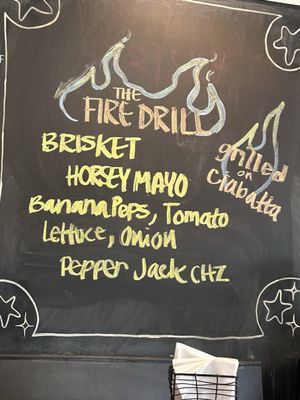 THE
FIRE DRILL
BRISKET
HORSEY MAYO
Banana Peps, Tomato
Lettuce, Onion
Pepper Jack CHZ
grilled
on
Ciabatta